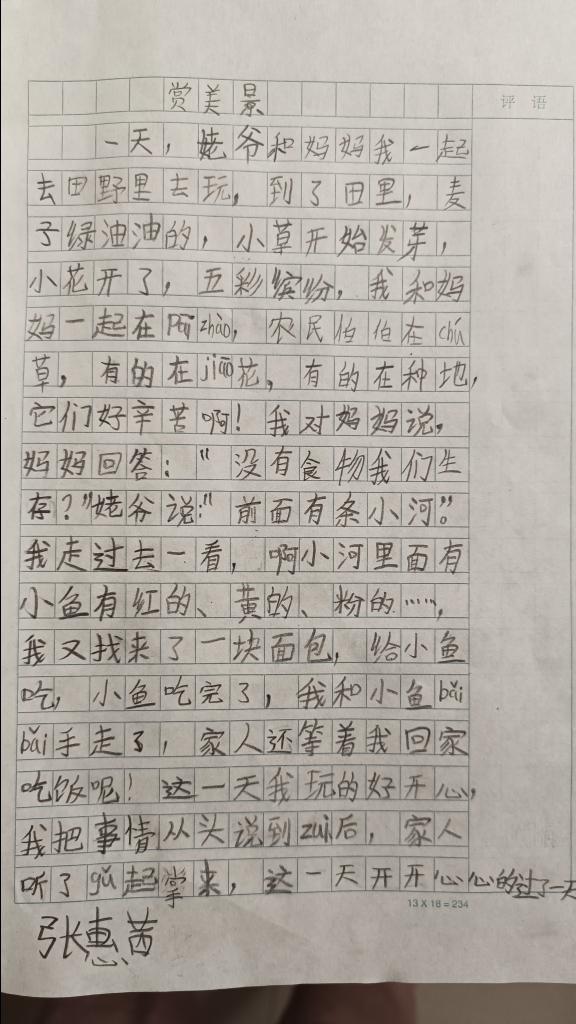 赏美景
评 语
一天，姥爷和妈妈我一起
去田野里去玩，到了田里，麦
子绿油油的，小草开始发芽，
小花开了，五彩缤纷，我和妈
妈一起在Pāi zhào，农民伯伯在chú
草，有的在jiāo花，有的在种地，
它们好辛苦啊！我对妈妈说，
妈妈回答：“没有食物我们生
存？”姥爷说：“前面有条小河”。
我走过去一看，啊小河里面有
小鱼有红的、黄的、粉的……，
我又找来了一块面包，给小鱼
吃，小鱼吃完了，我和小鱼bǎi
bǎi手走了，家人还等着我回家
吃饭呢！这一天我玩的好开心，
我把事情从头说到zuì后，家人
听了gǔ起掌来，这一天开开心心的过了一天
13×18=234
张惠茜